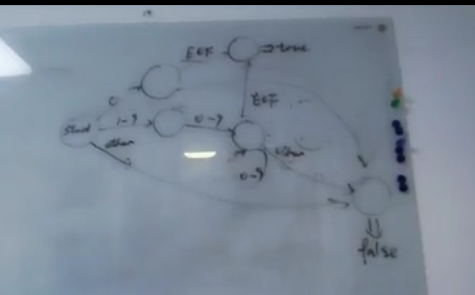 EOF
true
0
EOF
start
1-9
0-9
other
other
0-9
false